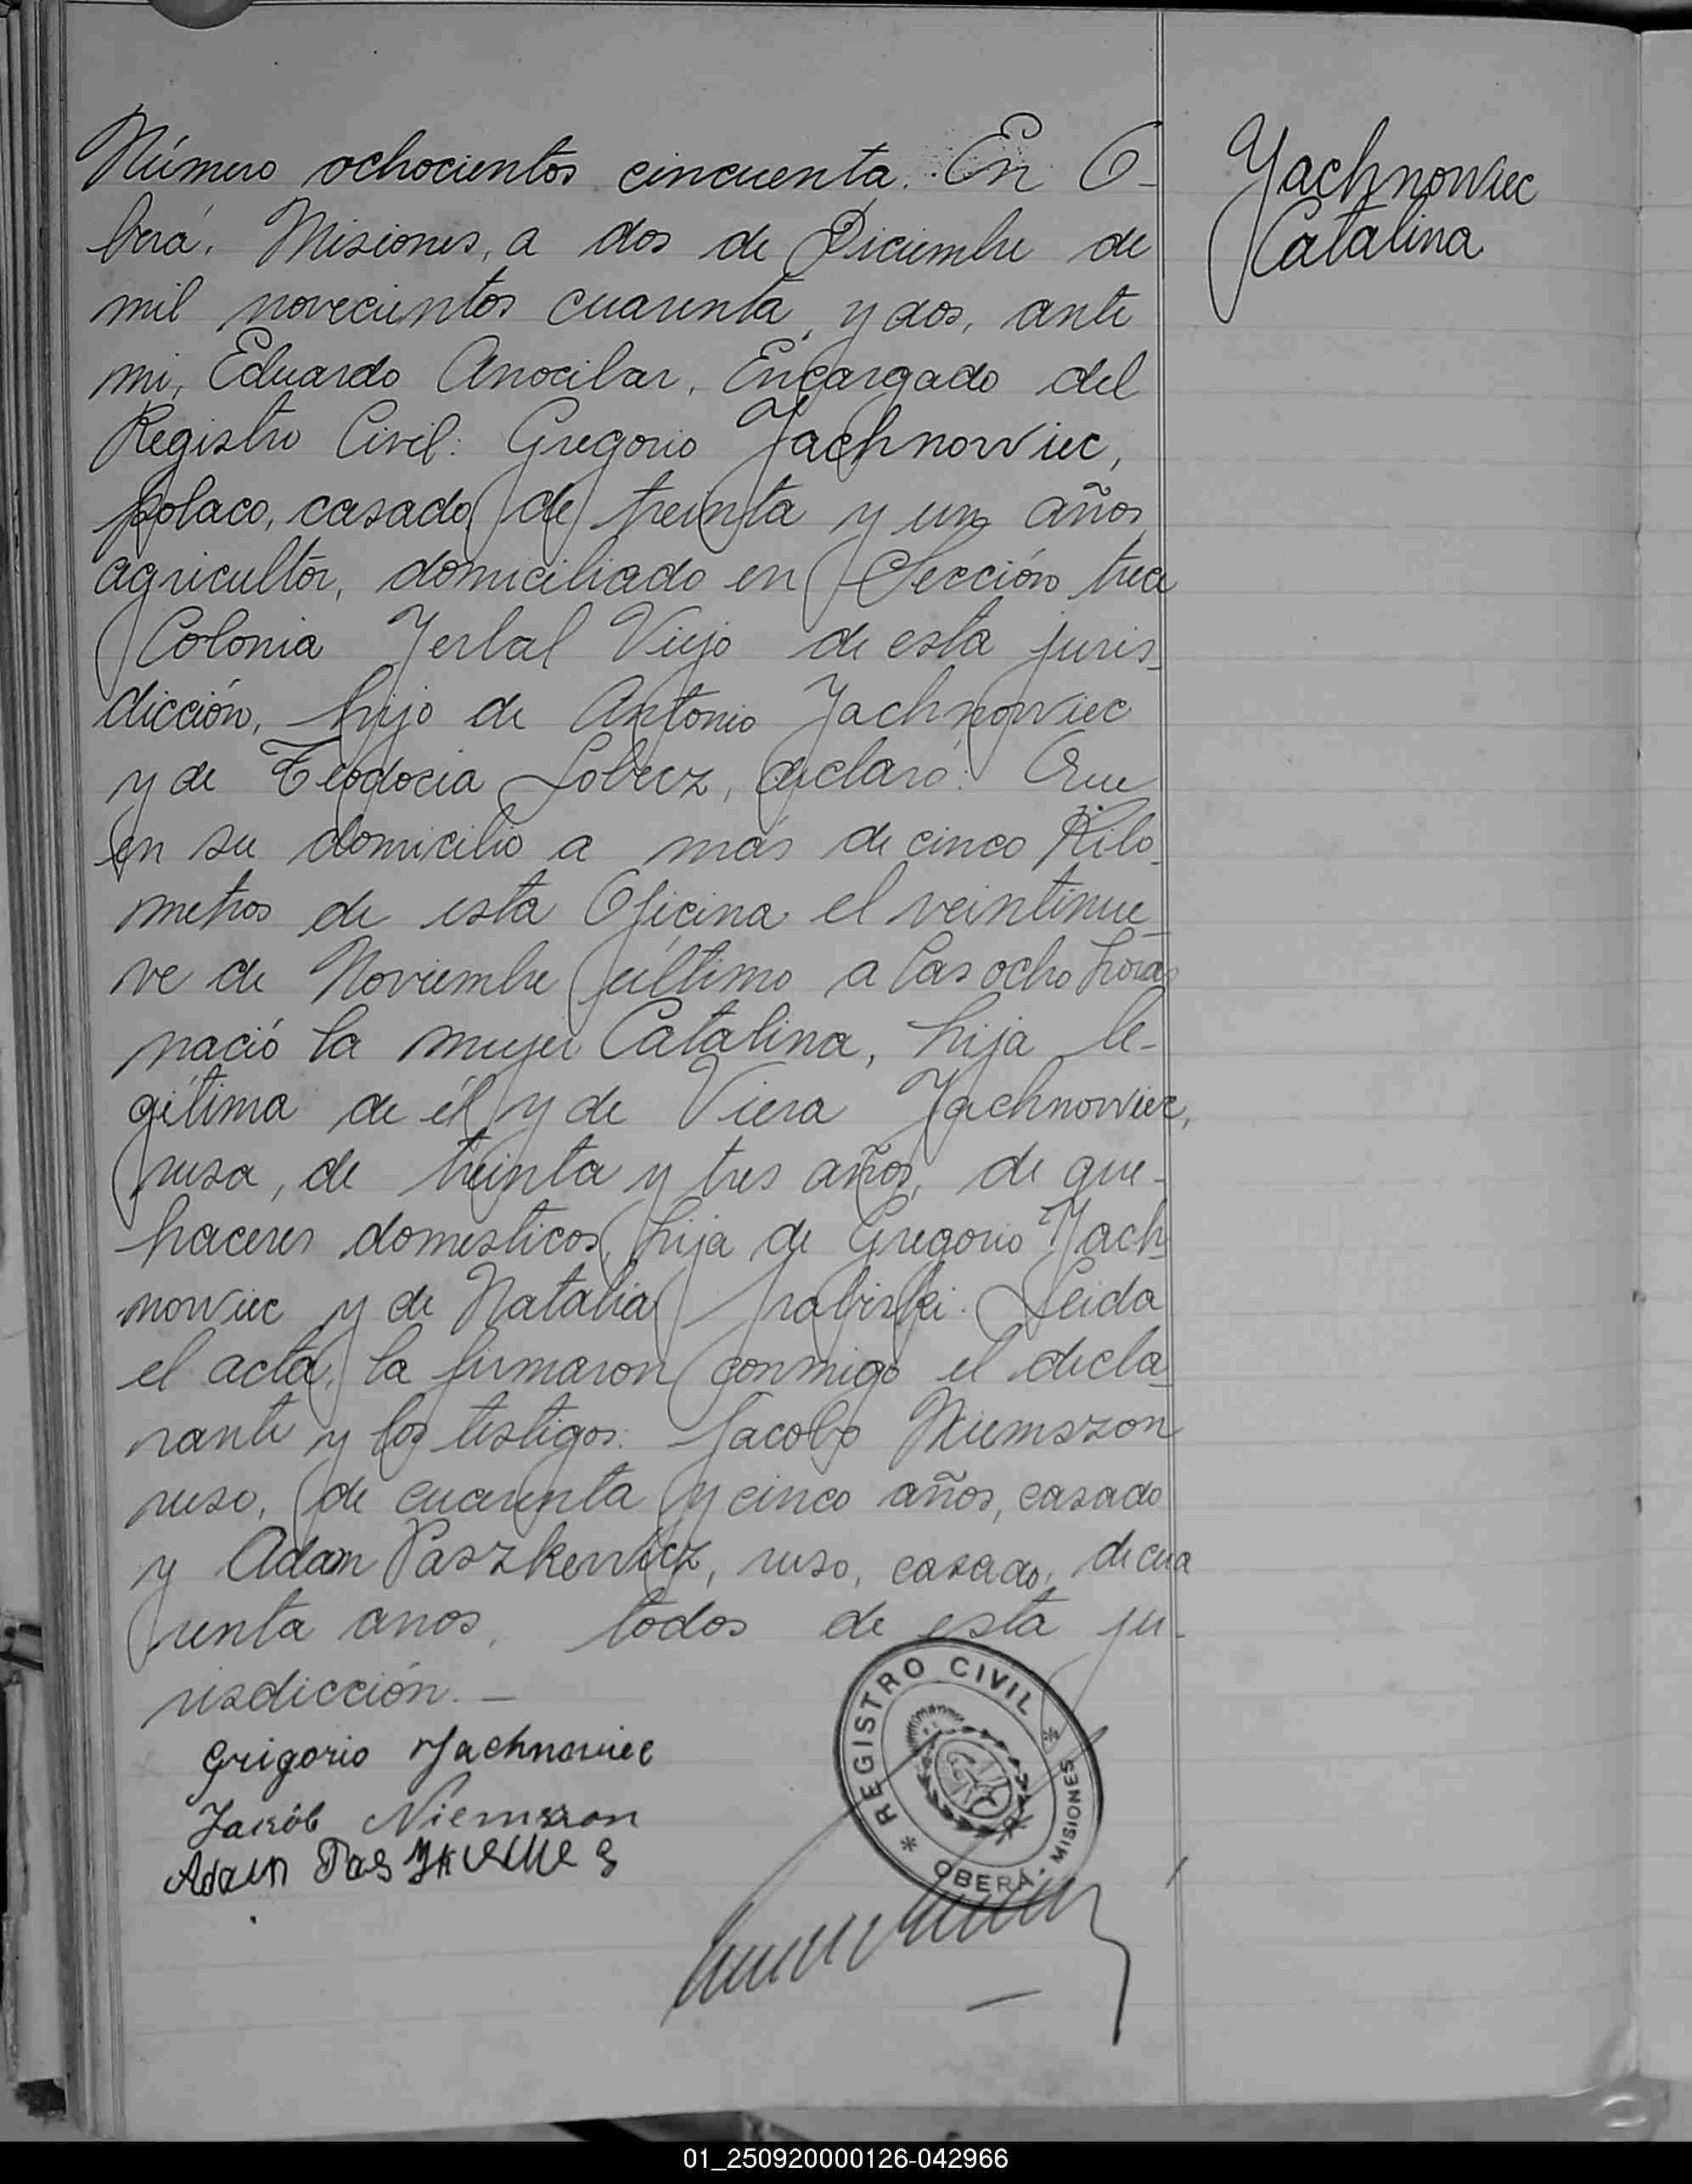 Número ochocientos cincuenta. En O-
berá, Misiones, a dos de Diciembre de
mil novecientos cuarenta y dos, ante
mi, Eduardo Anocibar, Encargado del
Registro Civil: Gregorio Jachnowiec,
polaco, casado, de treinta y un años,
agricultor, domiciliado en Sección trece
Colonia Yerbal Viejo de esta juris-
dicción, hijo de Antonio Jachnowiec
y de Teodocia Sobecz, declaró: Que
en su domicilio a más de cinco Kiló-
metros de esta Oficina el veintinue-
ve de Noviembre último a las ocho horas
nació la mujer Catalina, hija le-
gitima de él y de Viera Jachnowiec,
rusa, de treinta y tres años, de que-
haceres domesticos, hija de Gregorio Jach-
nowiec y de Natalia. Leida
el acta, la firmaron conmigo el decla-
rante y los testigos: Jacobo Niemszon
ruso, de cuarenta y cinco años, casado
y Adam Paszkewicz, ruso, casado, de cua
renta anos, todos de esta ju-
risdicción.—
Grigorio Jachnowiec
Jakób Niemszon
Adam
Yachnowiec
Catalina
* REGISTRO CIVIL *
OBERÁ - MISIONES
01_250920000126-042966